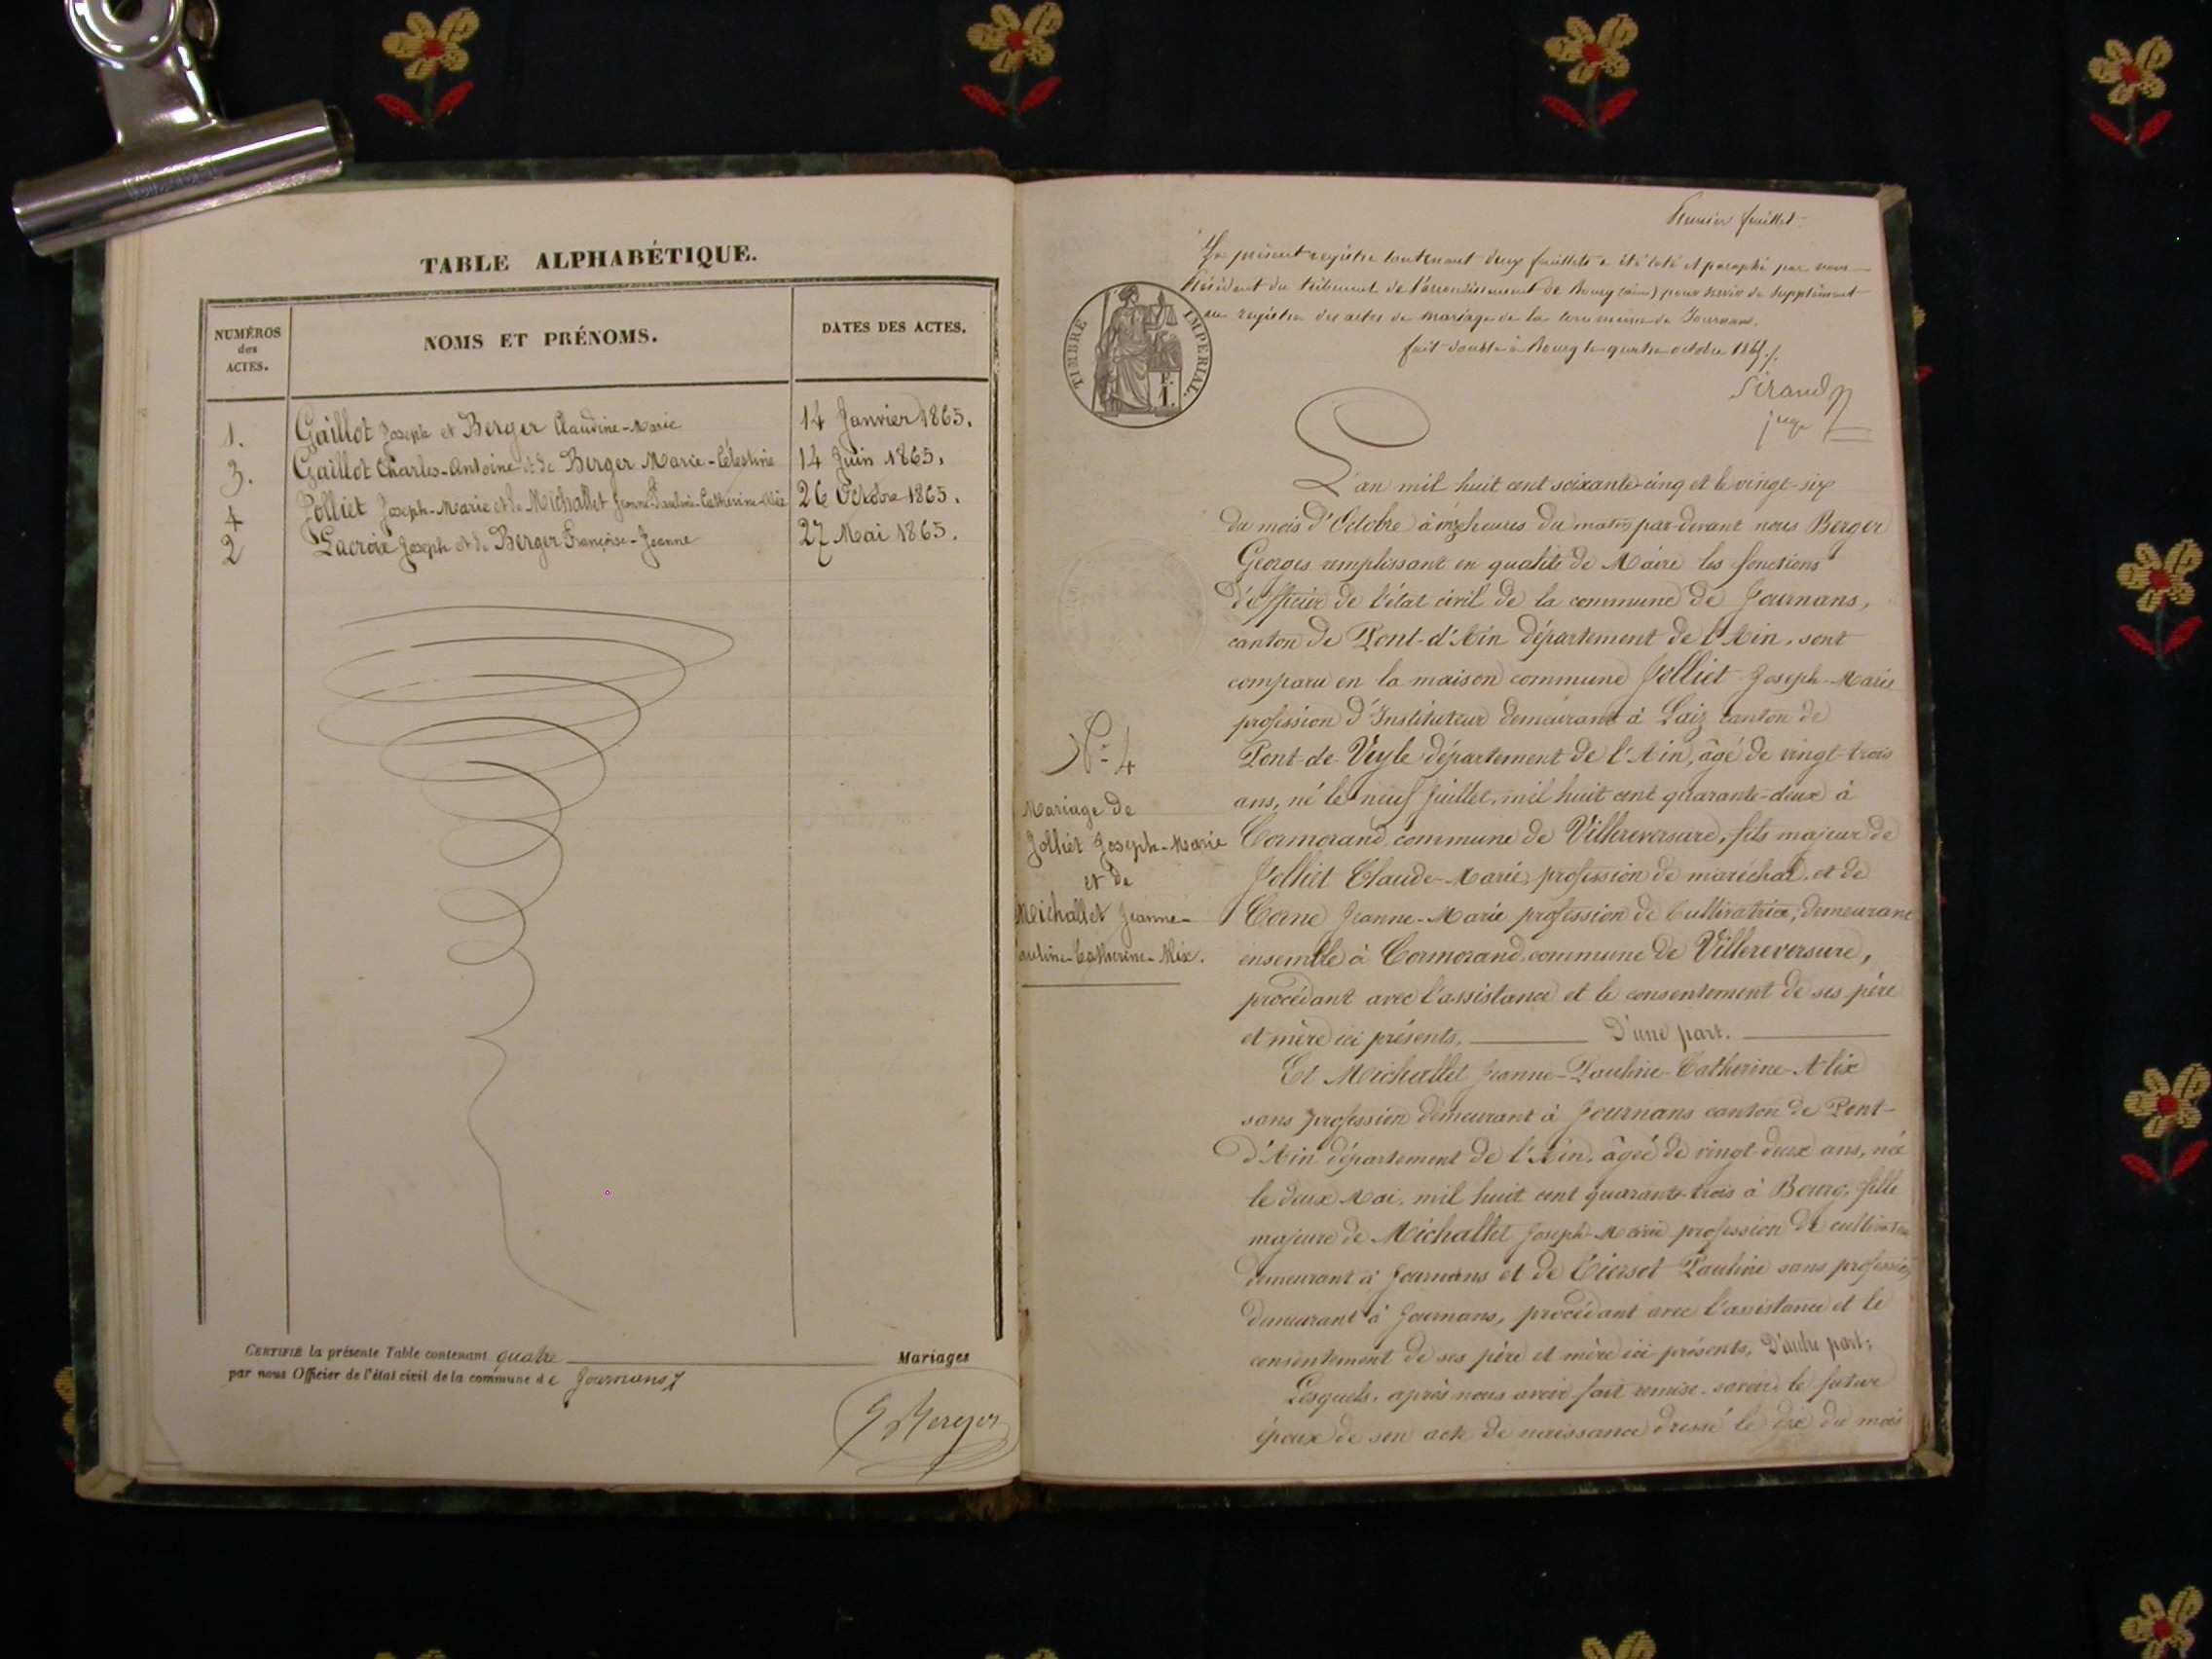 TABLE ALPHABÉTIQUE.
NUMÉROS
des
ACTES.
NOMS ET PRÉNOMS.
DATES DES ACTES.
1. Gaillot Joseph et Berger Claudine-Marie 14 Janvier 1865.
3. Gaillot Charles-Antoine et de Berger Marie-Célestine 14 Juin 1865.
4 Jolliet Joseph-Marie et de Michallet Jeanne-Pauline-Catherine-Alix 26 Octobre 1865.
2 Lacroix Joseph et de Berger Françoise-Jeanne 27 Mai 1865.
CERTIFIÉ la présente Table contenant quatre Mariages
par nous Officier de l'état civil de la commune de Journans
G Berger
Premier feuillet.
Le présent registre contenant deux feuillets a été coté et paraphé par nous
Président du tribunal de l'arrondissement de Bourg (ain) pour servir de supplément
au registre des actes de mariage de la commune de Journans.
fait double à Bourg le quatre octobre 1865.
Sirand
juge
TIMBRE IMPÉRIAL.
F.
1.
L'an mil huit cent soixante-cinq et le vingt-six
du mois d'Octobre à onze heures du matin par-devant nous Berger
Georges remplissant en qualité de Maire les fonctions
d'officier de l'état civil de la commune de Journans,
canton de Pont-d'Ain département de l'Ain, sont
comparu en la maison commune Jolliet Joseph-Marie
profession d'Instituteur demeurant à Laiz canton de
Pont-de-Veyle département de l'Ain, âgé de vingt-trois
ans, né le neuf Juillet, mil huit cent quarante-deux à
Cormorand commune de Villereversure, fils majeur de
Jolliet Claude-Marie, profession de maréchal, et de
Corne Jeanne-Marie profession de Cultivatrice, demeurant
ensemble à Cormorand commune de Villereversure,
procédant avec l'assistance et le consentement de ses père
et mère ici présents, D'une part.
Et Michallet Jeanne-Pauline-Catherine-Alix
sans profession demeurant à Journans canton de Pont-
d'Ain département de l'Ain, âgée de vingt-deux ans, née
le deux Mai, mil huit cent quarante-trois à Bourg, fille
majeure de Michallet Joseph-Marie profession de cultivateur
demeurant à Journans et de Pauline sans profession
demeurant à Journans, procédant avec l'assistance et le
consentement de ses père et mère ici présents, D'autre part;
Lesquels, après nous avoir fait remise, savoir: le futur
époux de son acte de naissance dressé le dix du mois
N° 4
Mariage de
Jolliet Joseph-Marie
et de
Michallet Jeanne-
Pauline-Catherine-Alix.